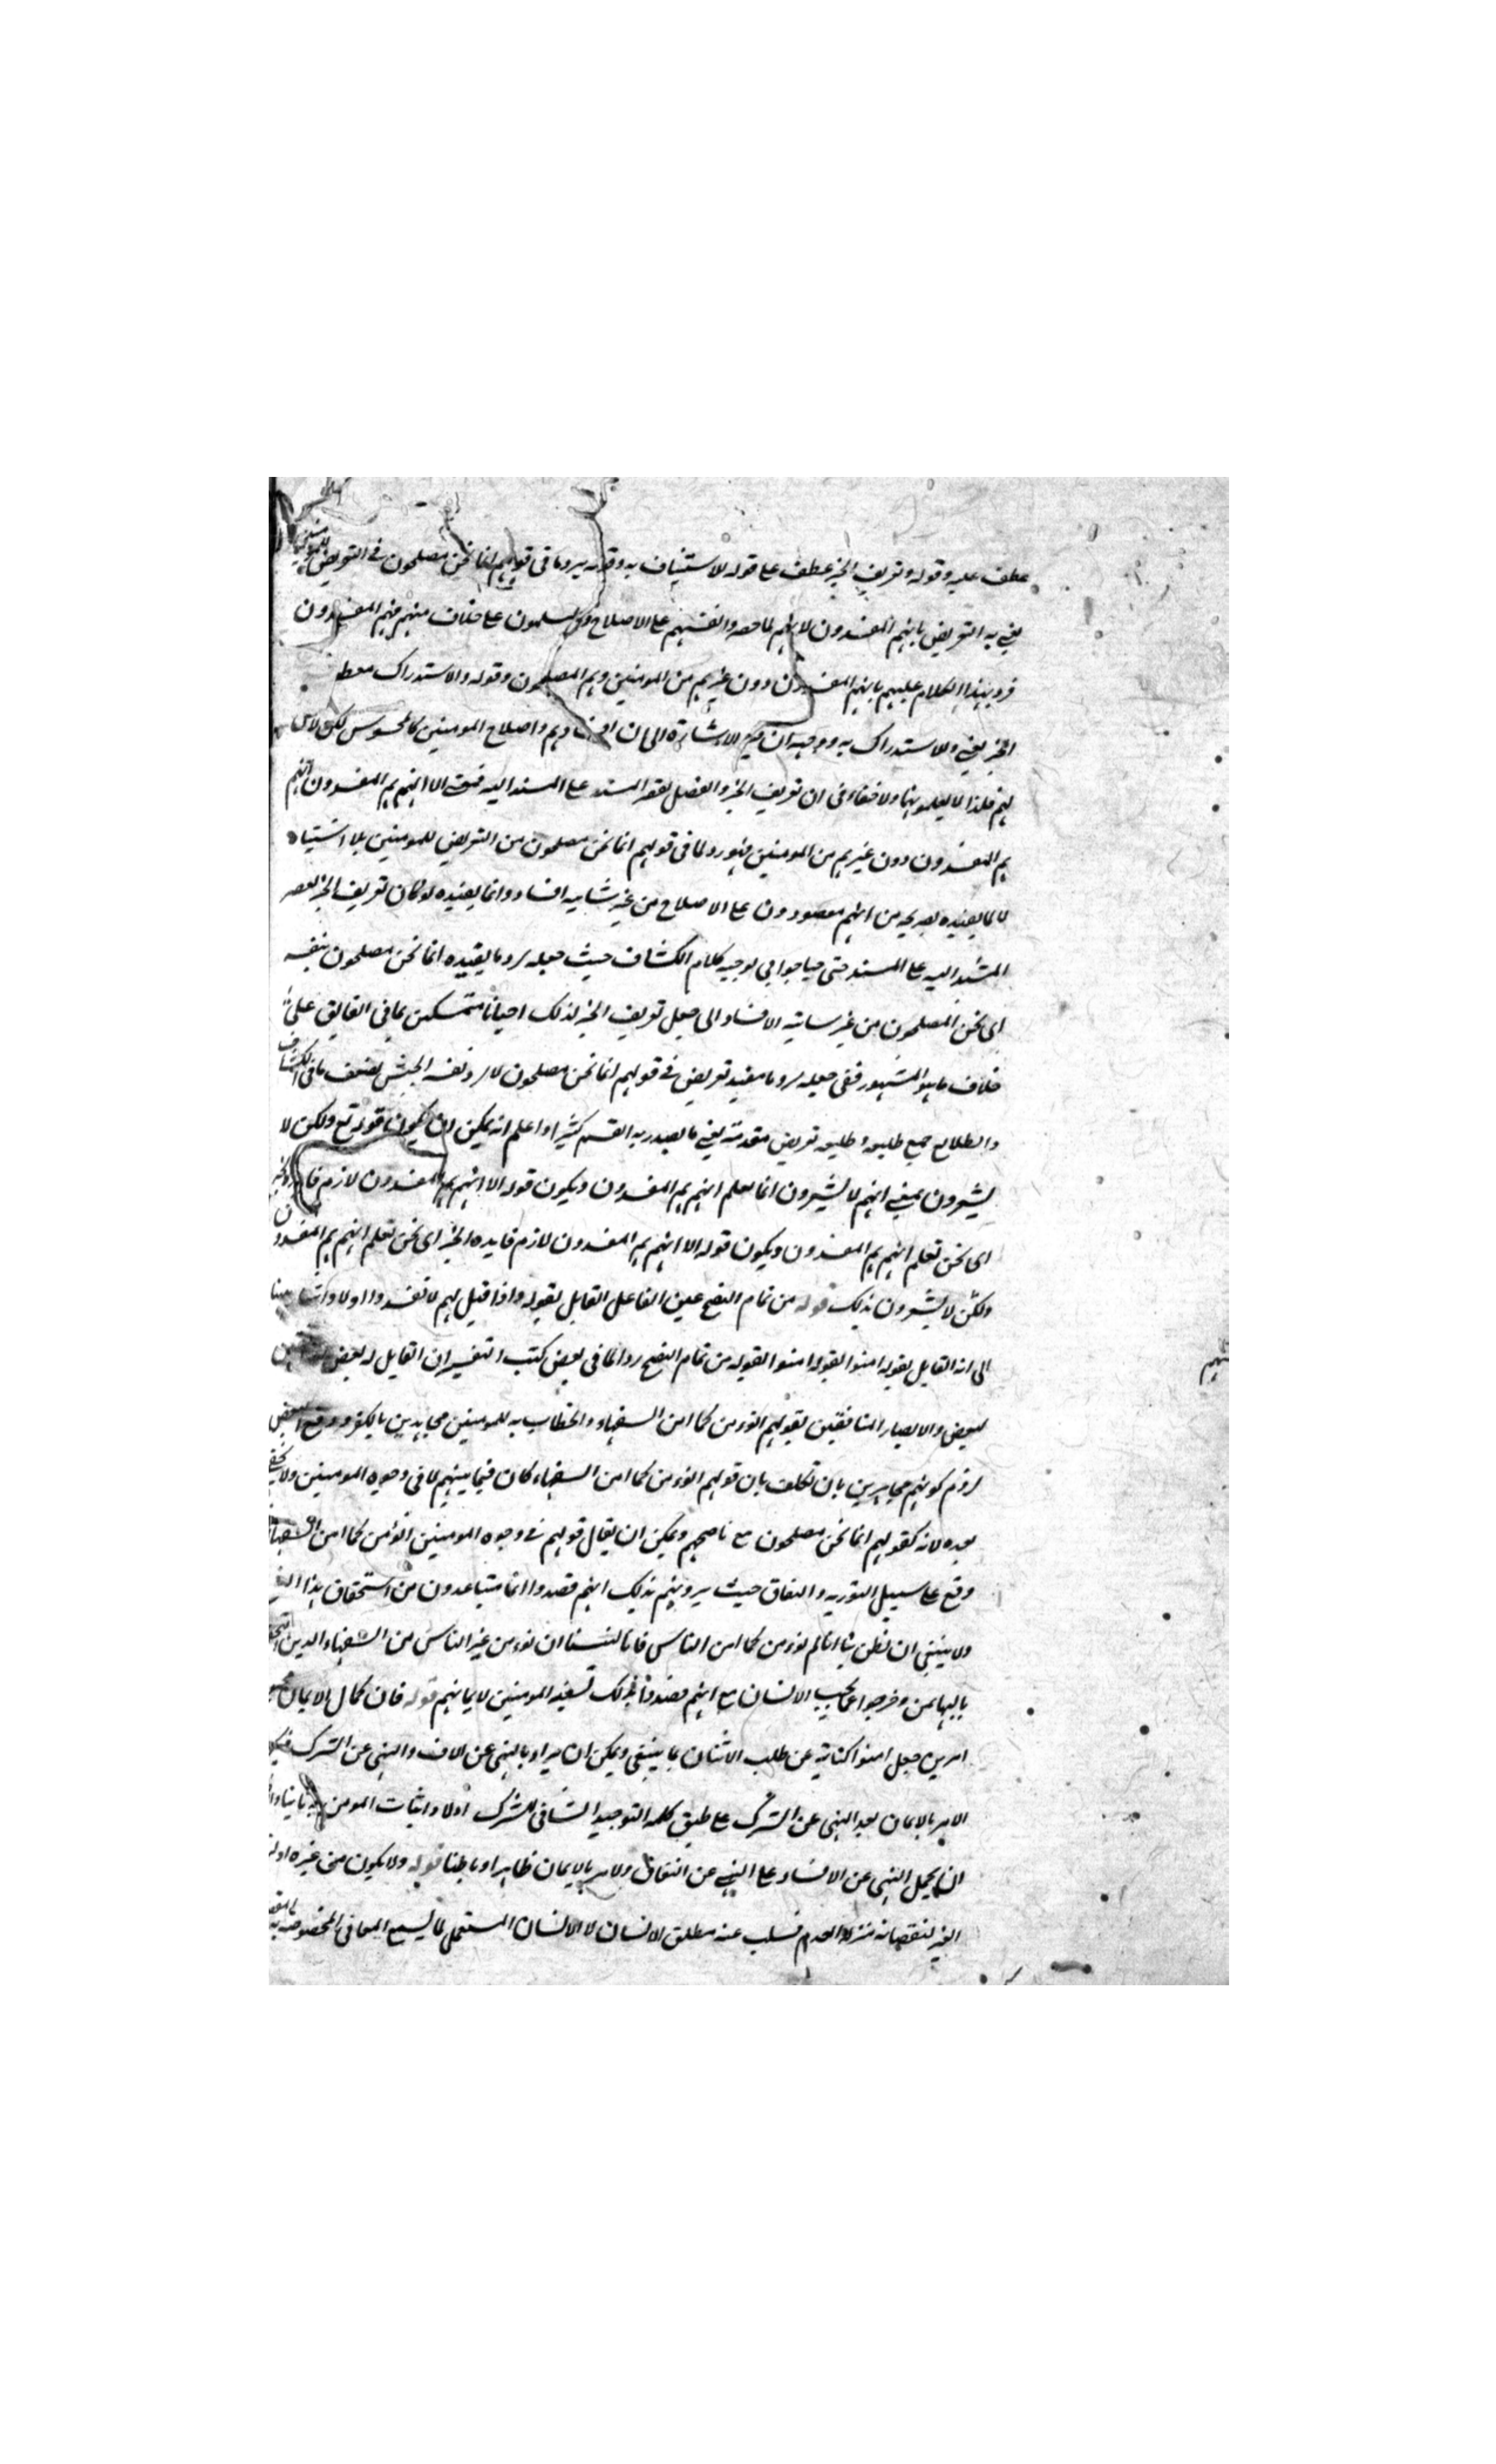 عطف عليه وقوله وتعريف الخبر عطف على قوله للاستيناف به وقوله يرد ما في قولهم انما نحن مصلحون في التعريض للمومنين
يعني به التعريض بانهم المفسدون لانهم لما حصروا انفسهم على الاصلاح والمسلمون على خلاف منهم فهم المفسدون
فرد بهذا الكلام عليهم بانهم المفسدون دون غيرهم من المومنين وهم المصلحون وقوله والاستدراك عطف
الخبر يعني والاستدراك به ووجهه ان فيه الاشارة الى ان افسادهم واصلاح المومنين كالمحسوس لكن لا حس
لهم فلذا لا يعلمونها ولا خفاء في ان تعريف الخبر والفصل لقصر المسند على المسند اليه فمعنى الا انهم هم المفسدون انهم
هم المفسدون دون غيرهم من المومنين فهو رد لما في قولهم انما نحن مصلحون من التعريض للمومنين بلا اشتباه
لا لما يفيده بصريحه من انهم مقصورون على الاصلاح من غير شايبه افساد وانما يفيده لو كان تعريف الخبر لقصر
المسند اليه على المسند حتى جاوا في توجيه كلام الكشاف حيث جعله رد ما يفيده انما نحن مصلحون بنفسه
اى نحن المصلحون من غير شايبة الافساد الى جعل تعريف الخبر لذلك احيانا متمسكين بما في الفايق على
خلاف ما هو المشهور ففي جعله رد ما يفيد تعريض في قولهم انما نحن مصلحون لا رد نفسه الجش بضعف ما في الكشاف
والطلايع جمع طليعه وطليعه تعريض مقدمته يعني ما يصدر به القسم كثيرا واعلم انه يمكن ان يكون قوله تع ولكن لا
يشعرون بمعنى انهم لا يشعرون انما نعلم انهم هم المفسدون ويكون قوله الا انهم هم المفسدون لازم فايدة الخبر
اى نحن نعلم انهم هم المفسدون ويكون قوله الا انهم هم المفسدون لازم فايده الخبر اى نحن نعلم انهم هم المفسدون
ولكن لا يشعرون بذلك قوله من تمام النصح عين الفاعل القايل بقوله واذا قيل لهم لا تفسدوا اولا واشار هنا
الى انه القايل بقوله امنوا بقوله امنوا لقوله من تمام النصح رد لما في بعض كتب التفسير ان القايل له بعض
لبعض والا لصار المنافقين بقولهم انؤمن كما امن السفهاء والخطاب به للمومنين مجاهرين بالكفر ودفع البعض
لزوم كونهم مجاهرين بان تكلف بان قولهم انؤمن كما امن السفهاء كان فيما بينهم لا في وجوه المومنين ولا يخفى
بعده لانه كقولهم انما نحن مصلحون مع ناصحهم ويمكن ان يقال قولهم في وجوه المومنين انؤمن كما امن السفهاء
وقع على سبيل التوريه والنفاق حيث يرونهم بذلك انهم قصدوا انا متباعدون من استحقاق هذا
ولا ينبغي ان يظن بنا انا لم نؤمن كما امن الناس فانا لسنا ان نؤمن غير الناس من السفهاء الذين
بالبهايم وخرجوا عما يجب الانسان مع انهم قصدوا بذلك تسفيه المومنين لايمانهم قوله فان كمال الايمان
امرين جعل امنوا كناية عن طلب الاتيان بما ينبغي ويمكن ان يراد بالنهى عن الافساد النهى عن الشرك
الامر بالايمان بعد النهى عن الشرك على طبق كلمه التوحيد النافي للشرك اولا واثبات المومن به ثانيا
ان يحمل النهى عن الافساد على النهى عن النفاق والامر بالايمان ظاهرا وباطنا قوله ولا يكون من غيره
الغير لنقصانه منزلة العدم فسلب عنه مطلق الانسان لا الانسان المستعمل لما يسع المعاني المخصوصه به